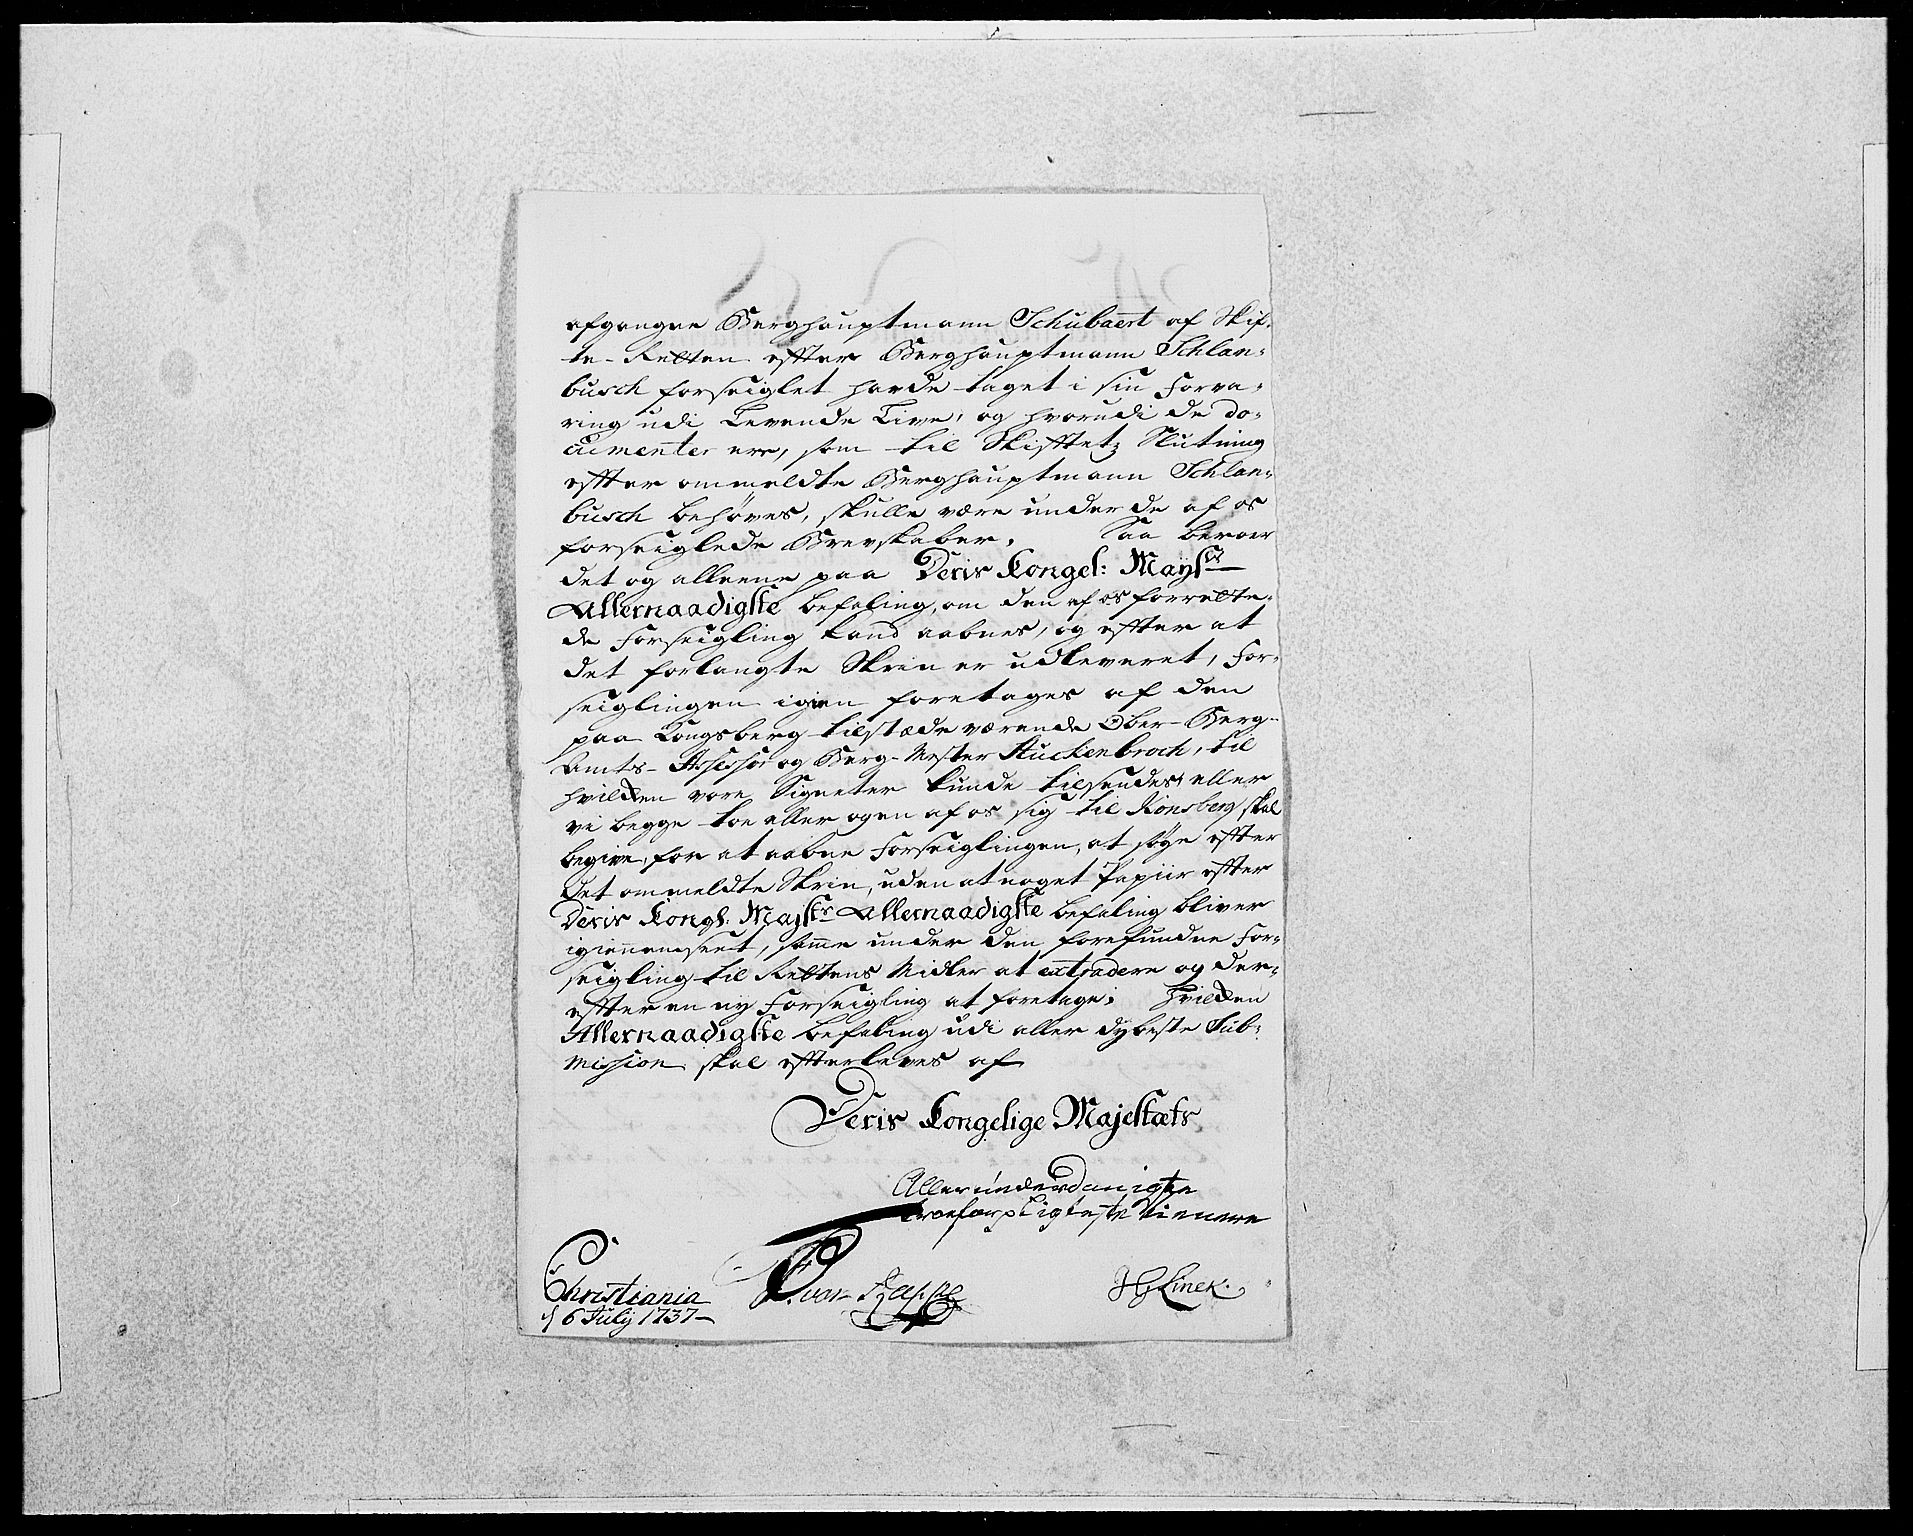 afgangne Berghauptmann Schubaert af Skif-
te-Retten efter Berghauptmann Schlan-
busch forseiglet hafde taget i sin Forva-
ring udi Levende Live, og hvorudi de do-
cumenter ere, som til Skifftetz Slutning
effter ommeldte Berghauptmann Schlan-
busch behøves, skulle være under de af os
forseiglede Brevskaber. Saa beroer
det og alleene paa Deris Kongel: Mayst:s
Allernaadigste befaling, om den af os forrette-
de Forseigling kand aabnes, og effter at
det forlangte Skrin er udleveret, For-
seiglingen igien foretages af den
paa Kongsberg tilstæde værende Ober-Berg-
Amts-Assessor og Berg-Mester Stuckenbroch, til
hvilken vore Signeter kunde tilsendes, eller
vi begge toe eller ogen af os sig til Konsberg skal
begive, for at aabne Forseiglingen, at søge effter
det ommeldte Skrin, uden at noget Papiir effter
Deris Kongl: Majsts Allernaadigste befaling bliver
igiennemseet, samme under den forefundne For-
seigling til Rettens Midler at extradere og der-
effter en ny Forseigling at foretage; Hvilken
Allernaadigste befaling udi aller dybeste Sub-
mission skal effterleves af
Deris Kongelige Majestæts
Allerunderdanigste
troeforpligteste Tienere
Christiania
d 6 July 1737
von Rappe
HG Linek.